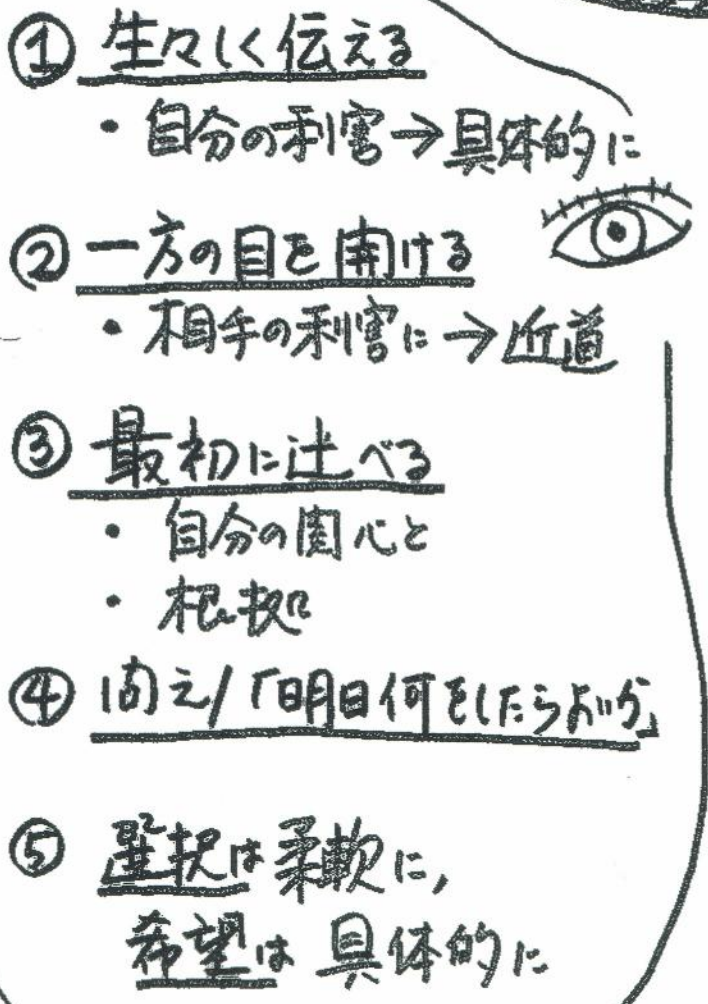 ① 生々しく伝える
・自分の利害→具体的に
② 一方の目を開ける
・相手の利害に→近道
③ 最初に述べる
・自分の関心と
・根拠
④ 問え!「明日何をしたらよいか」
⑤ 選択は柔軟に,
希望は具体的に